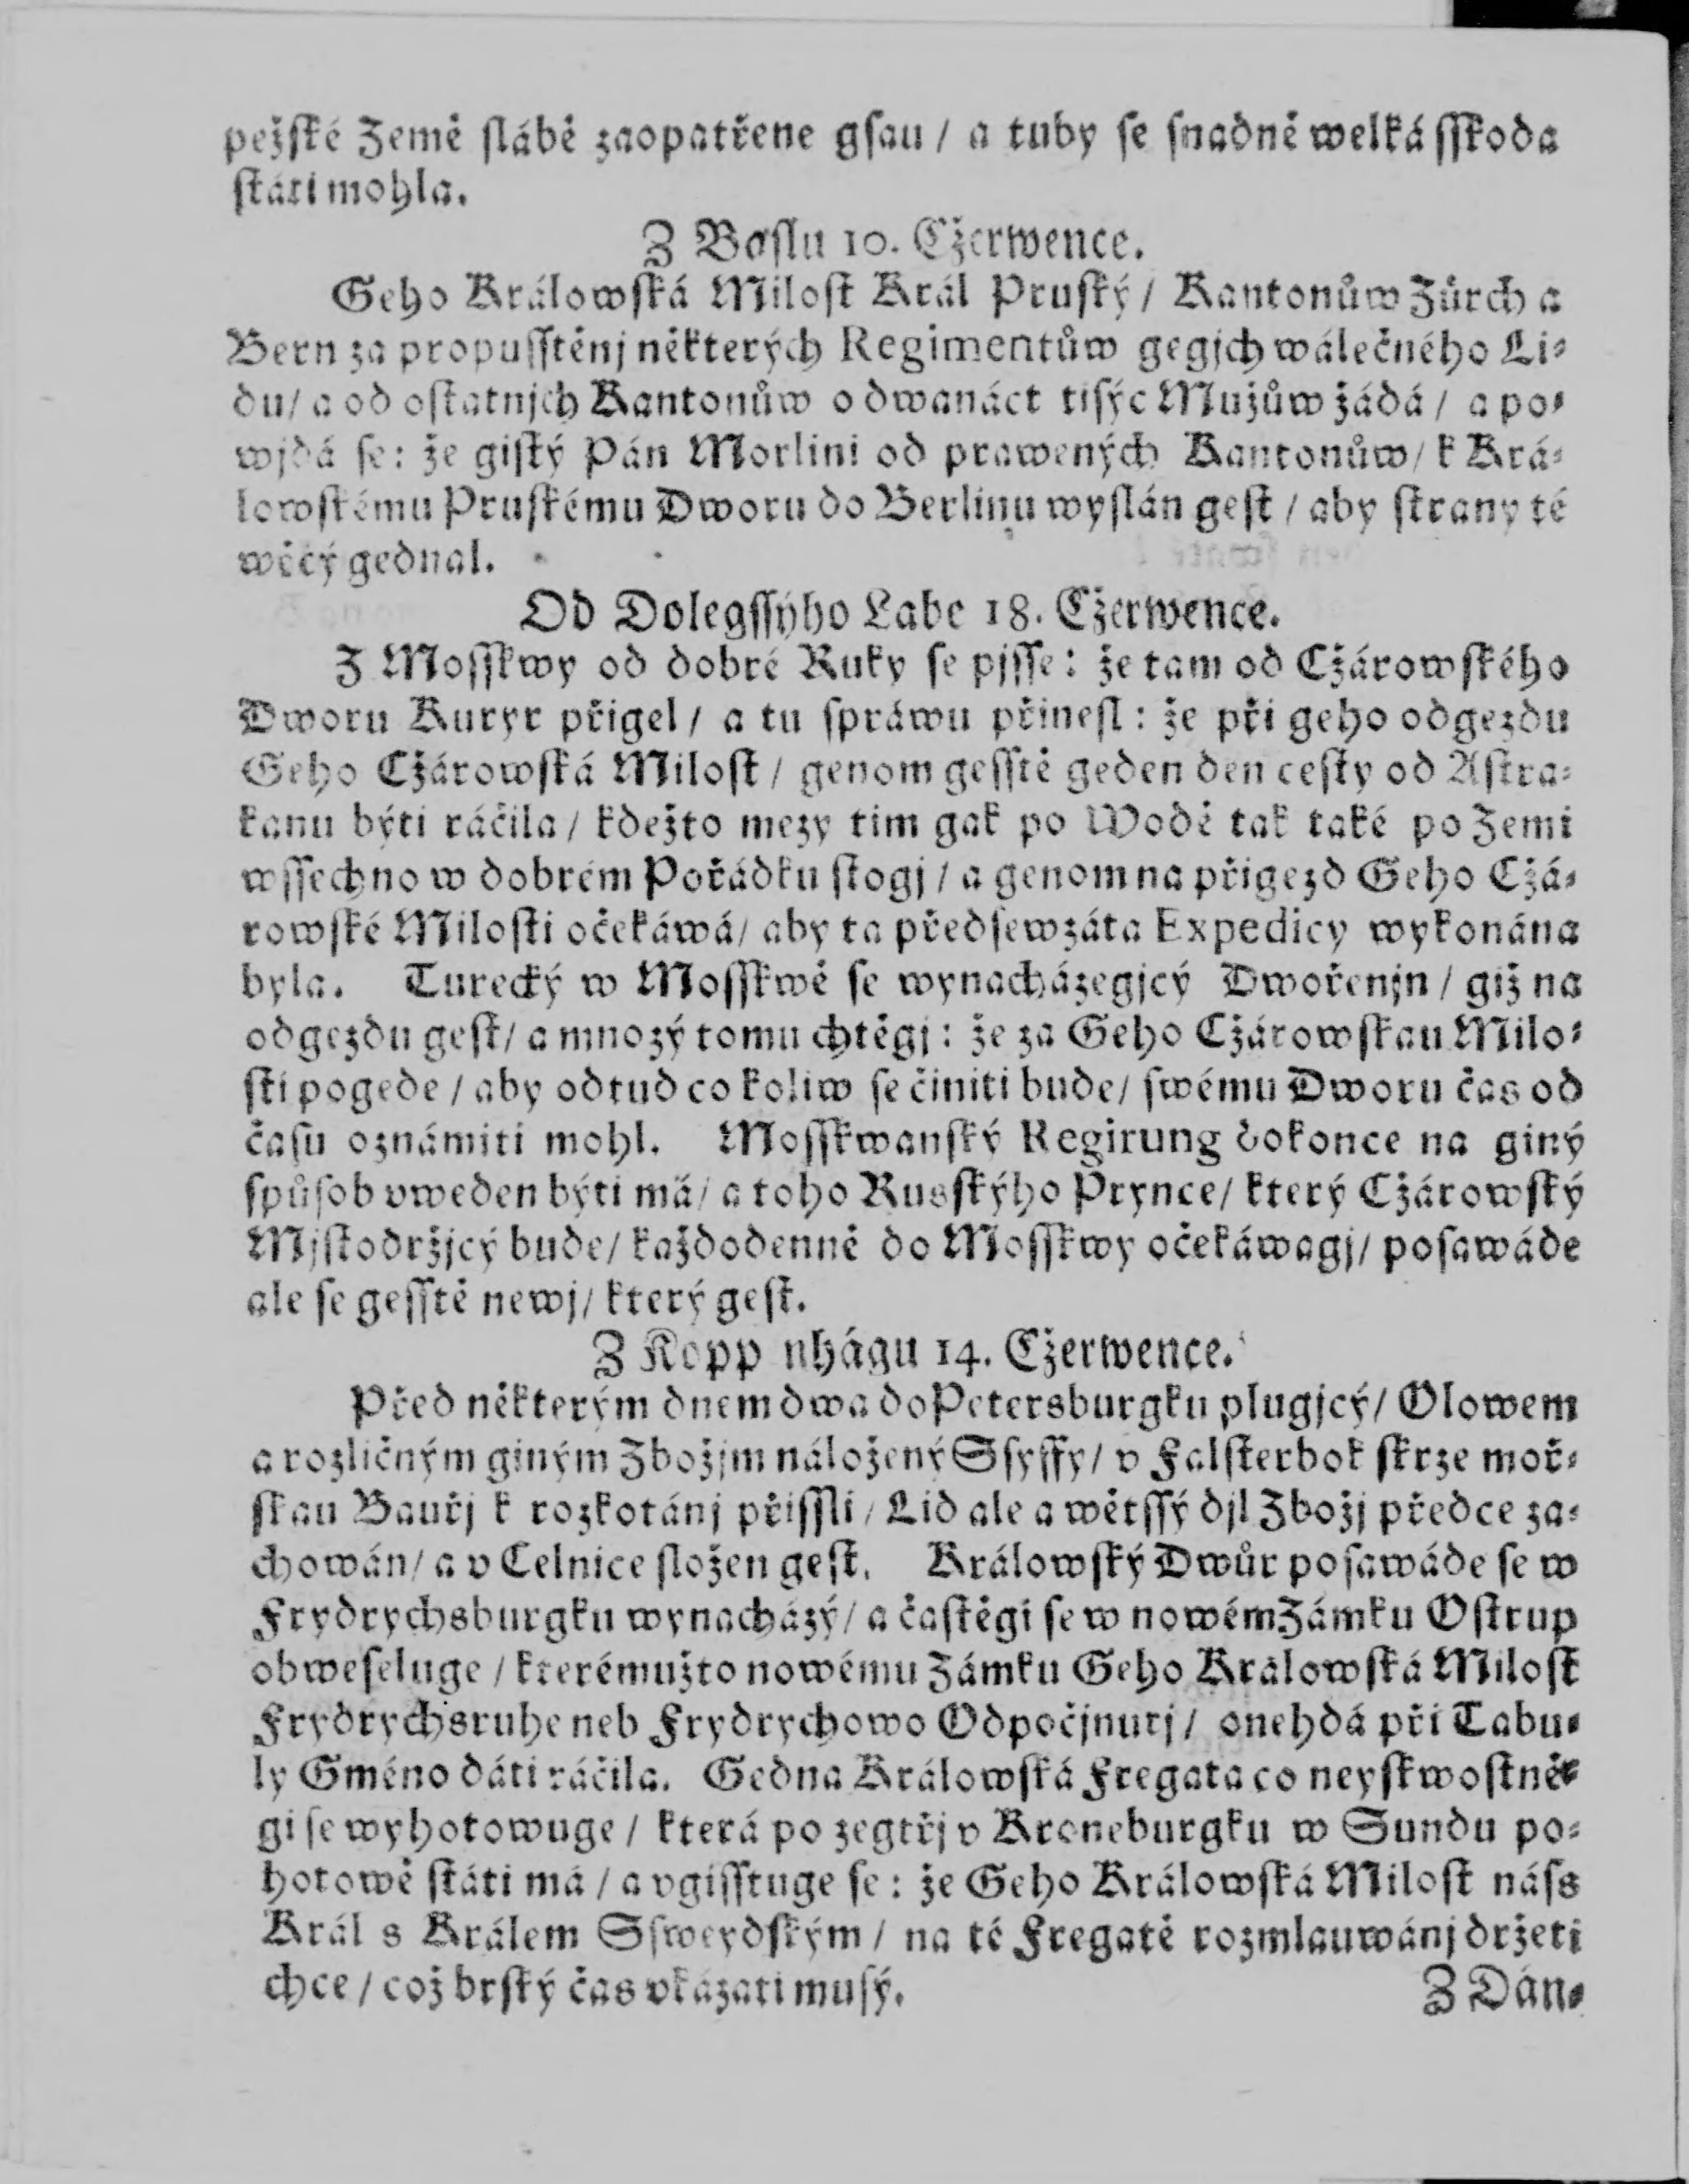 pežſké Země ſlábě zaopatřene gſau / a tuby ſe ſnadně welká ſſkoda
ſtáti mohla.
Z Baſlu 10. Cžerwence.
Geho Králowſká Miloſt Král Pruſký / Kantonůw Zürch a
Bern za propuſſtěnj některých Regimentůw gegjch wálečného Li⸗
du / a od oſtatnjch Kantonůw o dwanáct tiſýc Mužůw žádá / a po⸗
wjdá ſe: že giſtý Pán Morlini od prawených Kantonůw / k Krá⸗
lowſkému Pruſkému Dworu do Berlinu wyſlán geſt / aby ſtrany té
wěcý gednal.
Od Dolegſſýho Labe 18. Cžerwence.
Z Moſſkwy od dobré Ruky ſe pjſſe: že tam od Cžárowſkého
Dworu Kuryr přigel / a tu ſpráwu přineſl: že při geho odgezdu
Geho Cžárowſká Miloſt / genom geſſtě geden den ceſty od Aſtra⸗
kanu býti ráčila / kdežto mezy tim gak po Wodě tak také po Zemi
wſſechno w dobrém Pořádku ſtogj / a genom na přigezd Geho Cžá⸗
rowſké Miloſti očekáwá / aby ta předſewzáta Expedicy wykonána
byla. Turecký w Moſſkwě ſe wynacházegjcý Dwořenjn / giž na
odgezdu geſt / a mnozý tomu chtěgj: že za Geho Cžárowſkau Milo⸗
ſti pogede / aby odtud co koliw ſe činiti bude / ſwému Dworu čas od
čaſu oznámiti mohl. Moſſkwanſký Regirung dokonce na giný
ſpůſob vweden býti má / a toho Rusſkýho Prynce / který Cžárowſký
Mjſtodržjcý bude / každodenně do Moſſkwy očekáwagj / poſawáde
ale ſe geſſtě newj / který geſt.
Z Kopp nhágu 14. Cžerwence.
Před některým dnem dwa do Petersburgku plugjcý / Olowem
a rozličným giným Zbožjm náložený Sſyffy / v Falſterbok ſkrze moř⸗
ſkau Bauřj k rozkotánj přiſſli / Lid ale a wětſſý djl Zbožj předce za⸗
chowán / a v Celnice ſložen geſt. Králowſký Dwůr poſawáde ſe w
Frydrychsburgku wynacházý / a čaſtěgi ſe w nowém Zámku Oſtrup
obweſeluge / kterémužto nowému Zámku Geho Králowſká Miloſt
Frydrychsruhe neb Frydrychowo Odpočjnutj / onehdá při Tabu⸗
ly Gméno dáti ráčila. Gedna Králowſká Fregata co neyſkwoſtně⸗
gi ſe wyhotowuge / která po zegtřj v Kroneburgku w Sundu po⸗
hotowě ſtáti má / a vgiſſtuge ſe: že Geho Králowſká Miloſt náſs
Král s Králem Sſweydſkým / na té Fregatě rozmlauwánj držeti
chce / což brſký čas vkázati muſý.
Z Dán⸗